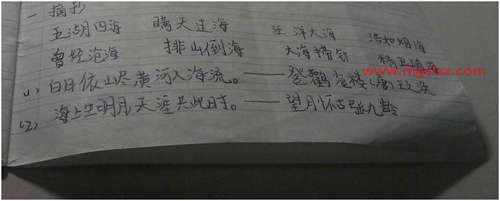 一 摘抄
五湖四海 瞒天过海 汪洋大海 浩如烟海
曾经沧海 排山倒海 大海捞针 精卫填海
www.
(1) 白日依山尽黄河入海流。——登鹳雀楼(唐)王之涣
(2) 海上生明月天涯共此时。——望月怀古 张九龄